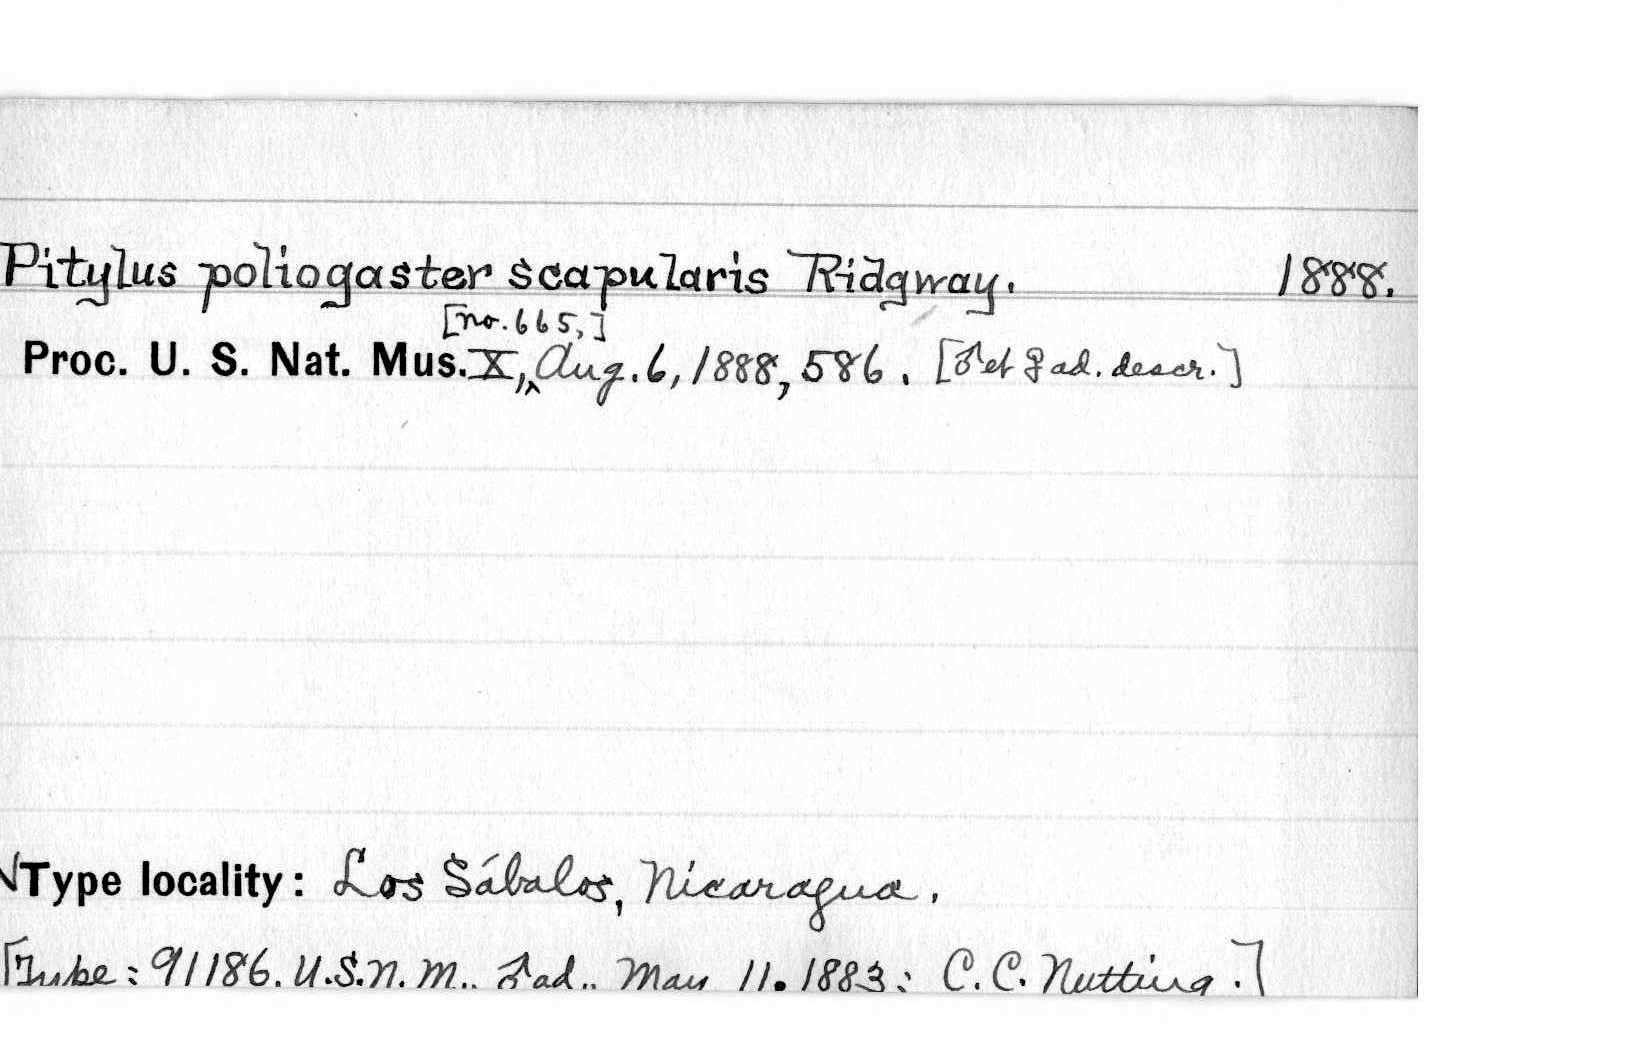 Pitylus poliogaster scapularis Ridgway. 1888.
[no. 665,]
Proc. U. S. Nat. Mus. X, ^ Aug. 6, 1888, 586. [♂ et ♀ ad. descr.]
√Type locality: Los Sábalos, Nicaragua.
[Type: 91186, U.S.N.M., ♂ ad., May 11, 1883; C.C. Nutting.]